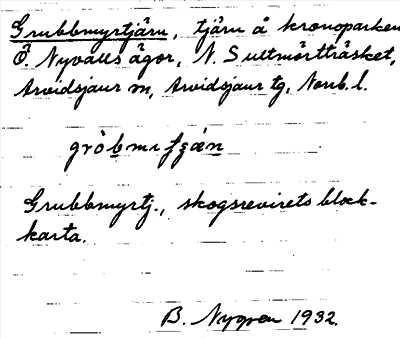 Grubbmyrtjärn, tjärn å kronoparken
Ö Nyvalls ägor, N. Sultmörtträsket,
Arvidsjaur sn, Arvidsjaur tg, Norrb. l.
Grubbmyrtj., skogsrevirets block-
karta.
B. Nygren 1932.